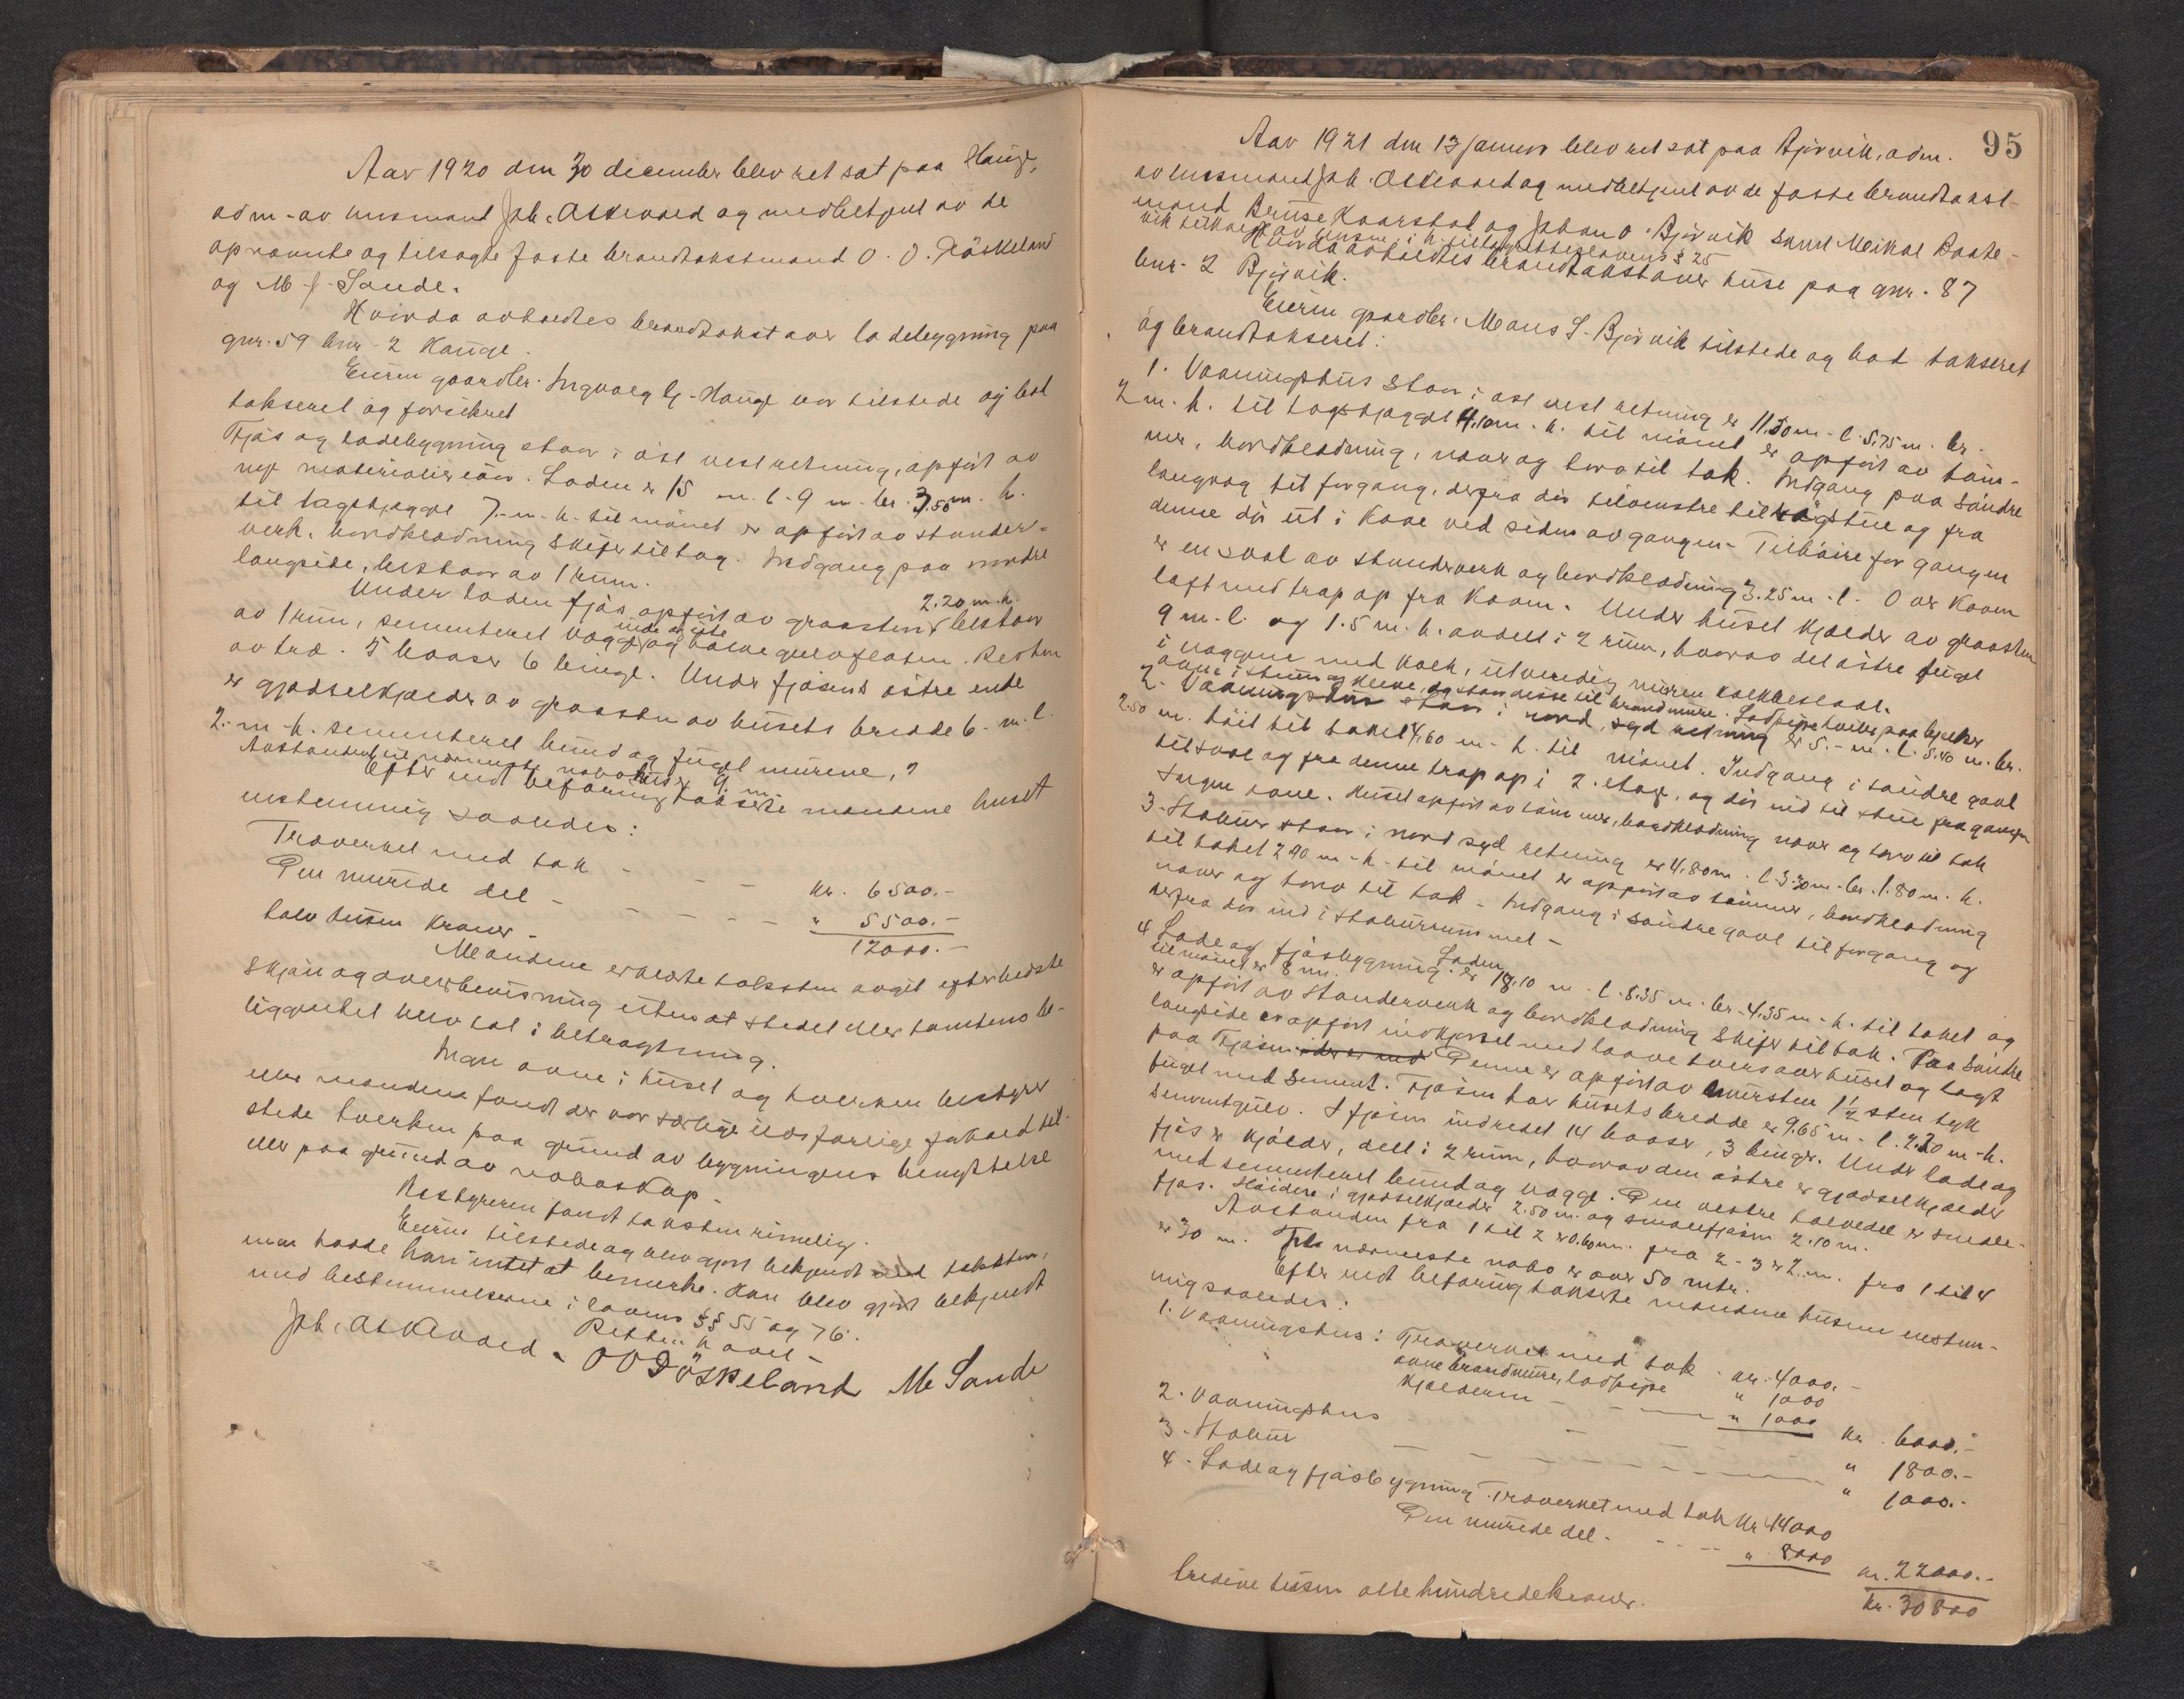 Aar 1920 den 30 december blev ret sat paa Hauge,
adm. av lensmand Joh. Askevold og medbetjent av de
opnævnte og tilsagte faste brandtakstmænd O. O. Döskeland
og M. J. Sande.
Hvorda avholdtes brandtakst over ladebygning paa
gnr. 59 bnr. 2 Hauge.
Eieren gaardbr. Ingvald G. Hauge var tilstede og bad
takseret og forsikret
Fjøs og ladebygning staar i øst vest retning, opført av
nye materialier iaar. Laden er 15 m. l. 9 m. br. 3,50 m. h.
til tagskjægget 7.- m. h. til mönet er opført av stander-
verk, bordklædning skifer til tag. Indgang paa nordre
langside, bestaar av 1 rum.
Under laden fjøs opført av graasten 2.20 m. h. bestaar
av 1 rum, sementeret vægge inde og ute og halve gulvflaten. Resten
av træ. 5 baaser 6 binge. Under fjøsens østre ende
er gjødselkjælder av graasten av husets bredde 6.- m. l.
2.- m. h. sementeret bund og fuget murene,
Avstanden til nærmeste nabohuser 9. m.
Efter endt befaring takserte mændene huset
enstemmig saaledes:
Træverket med tak - - - kr. 6500.-
Den murede del - - - - - " 5500.-
tolv tusen kroner - 12000.-
Mændene erklærte taksten avgit efter bedste
skjøn og overbevisning uten at stedet eller tomtens be-
liggenhet blev tat i betragtning.
Ingen ovne i huset og hverken bestyrer
eller mændene fandt der var særlige ildsfarlige forhold til-
stede hverken paa grund av bygningens benyttelse
eller paa grund av naboskap -
Bestyreren fandt taksten rimelig.
Eieren tilstede og blev gjort bekjendt med taksten,
men hadde han intet at bemerke. Han blev gjort bekjendt
med bestemmelserne i lovens §§ 55 og 76.
Retten hævet -
Joh. Askevold - O O Döskeland M Sande
95
Aar 1921 den 13 januar blev ret sat paa Bjørvik, adm.
av lensmand Joh. Askevold og medbetjent av de faste brandtakst-
mænd Beruse Kaarstad og Johan O. Bjørvik samt Meikal Baate-
vik tilkaldt av lensm. i h. til lovens § 25
Hvorda avholdtes brandtakst over huse paa gnr. 87
bnr. 2 Bjørvik.
Eieren gaardbr. Mons S. Bjørvik tilstede og bad takseret
og brandtakseret:
1. Vaaningshus staar i øst vest retning er 11.50 m. l. 5,75 m. br.
2 m. h. til tagskjægget 4,10 m. h. til mönet er opført av töm-
mer, bordklædning, næver og torv til tak. Indgang paa søndre
langvæg til forgang, derfra dør tilvenstre til røgstue og fra
denne dør ut i kove ved siden av gangen. Tilbaire for gangen
er en sval av standerverk og bordklædning 3.25 m. l. Over koven
loft med trap op fra koven. Under huset kjælder av graasten
9 m. l. og 1.5 m. h. avdelt i 2 rum, hvorav det østre fuget
i væggene med kalk, utvendig muren kalkbeslaat.
ovne i stuen og kleve, og staar disse til brandmure. Lodpipe hviler paa bjelker
2. Vaaningshus staar i nord, syd retning er 5.- m. l. 5.40 m. br.
2.50 m. höit til taket 4,60 m. h. til mönet. Indgang i søndre gavl
til sval og fra denne trap op i 2. etage, og dør ind til stue fra gangen
Ingen ovne. Huset opført av tømmer, bordklædning næver og torv til tak
3. Stabur staar i nord syd retning er 4,80 m. l. 3.30 m. br. 1.80 m. h.
til taket 2.90 m. h. til mönet er opført av tømmer, bordklædning
næver og torv til tak - Indgang i søndre gavl til forgang og
derfra dør ind i staburrummet -
4 Lade og fjøsbygning. Laden er 18,10 m. l. 8.35 m. br. 4.35 m. h. til taket og
til mönet er 8 m.
er opført av standerverk og bordklædning skifer til tak. Paa søndre
langside er opført indkjørsel med laave tvers over huset og lagt
paa Fjøsen Denne er opført av mursten 1½ sten tyk
fuget med sement. Fjøsen har husets bredde er 9.65 m. l. 2.20 m. h.
sementgulv. I fjøsen indredet 14 baaser, 3 binger. Under lade og
fjøs er kjælder, delt i 2 rum, hvorav den østre er gjødselkjælder
med sementeret bund og vægge. Den vestre halvdel er smale-
fjøs. Höiden i gjødselkjælder 2.50 m. og smalefjøsen 2.10 m.
Avstanden fra 1 til 2 er 0.60 m. fra 2 - 3 er 2.- m. fra 1 til 4
er 30 m. Til nærmeste nabo er over 50 mtr.
Efter endt befaring takserte mændene husene enstem-
mig saaledes:
1. Vaaningshus: Træverket med tak - kr. 4000.-
ovne brandmure, lodpipe " 1000
Kjælderen - - " 1000 kr. 6000.-
2. Vaaningshus - - - " 1800.-
3. Stabur - - - - - " 1000.-
4. Lade og fjøsbygning. Træverket med tak kr. 14000
Den murede del - - - - " 8000 kr. 22000.-
tredive tusen otte hundrede kroner. kr. 30800